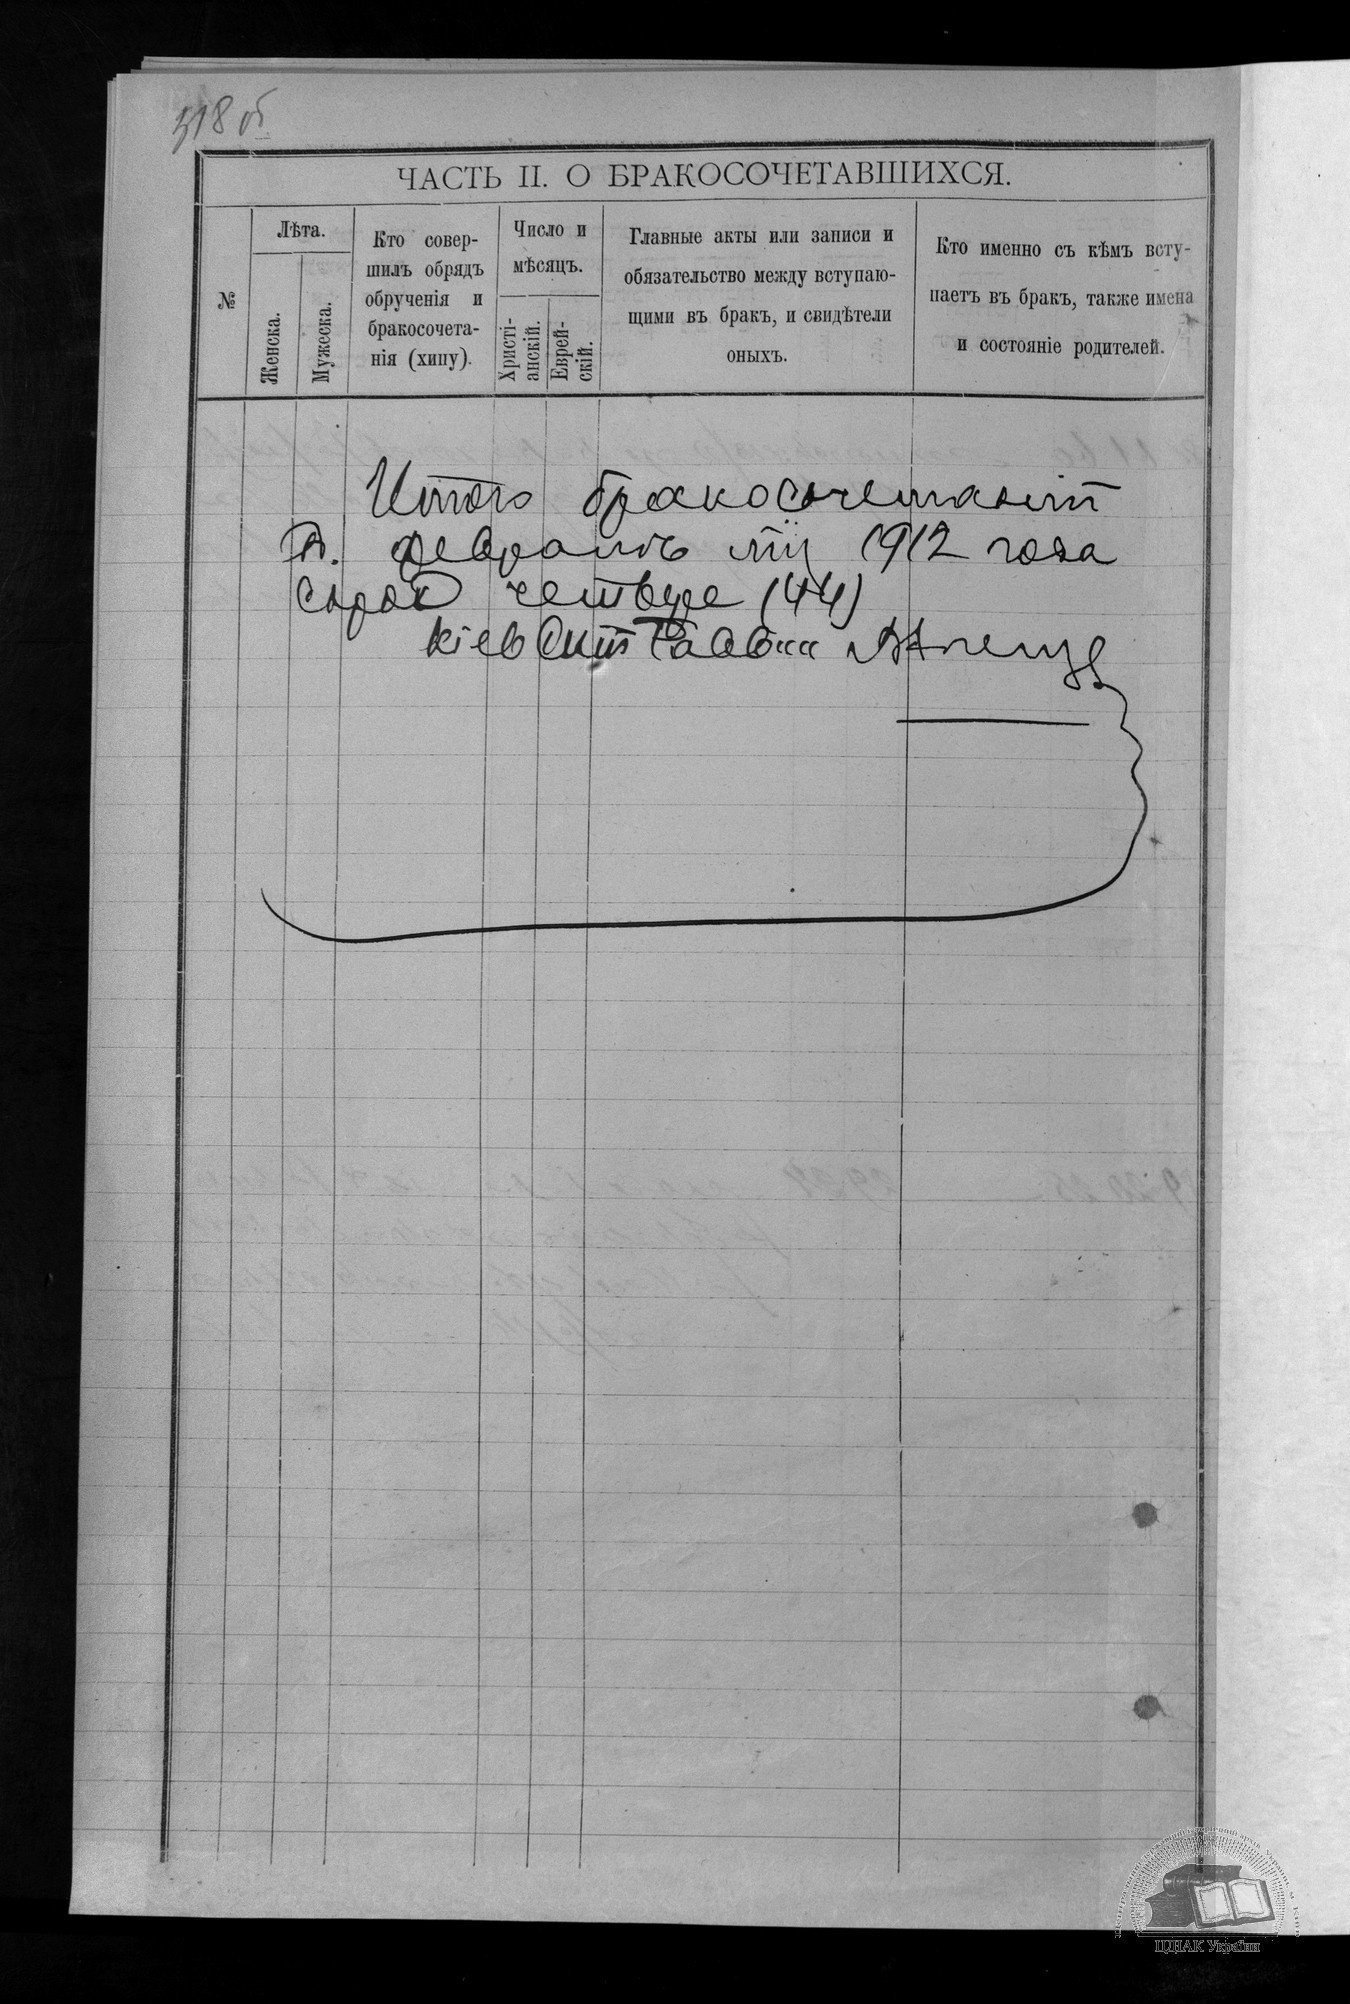 318 об
ЧАСТЬ II. О БРАКОСОЧЕТАВШИХСЯ.
№
Лѣта.
Женска.
Мужеска.
Кто совер-
шилъ обрядъ
обрученія и
бракосочета-
нія (хипу).
Число и
мѣсяцъ.
Христі-
анскій.
Еврей-
скій.
Главные акты или записи и
обязательство между вступаю-
щими въ бракъ, и свидѣтели
оныхъ.
Кто именно съ кѣмъ всту-
паетъ въ бракъ, также имена
и состояніе родителей.
Итого бракосочетаній
в. февралѣ мц 1912 года
сорок четыре (44)
Кіевскій Раввин
ЦДІАК України